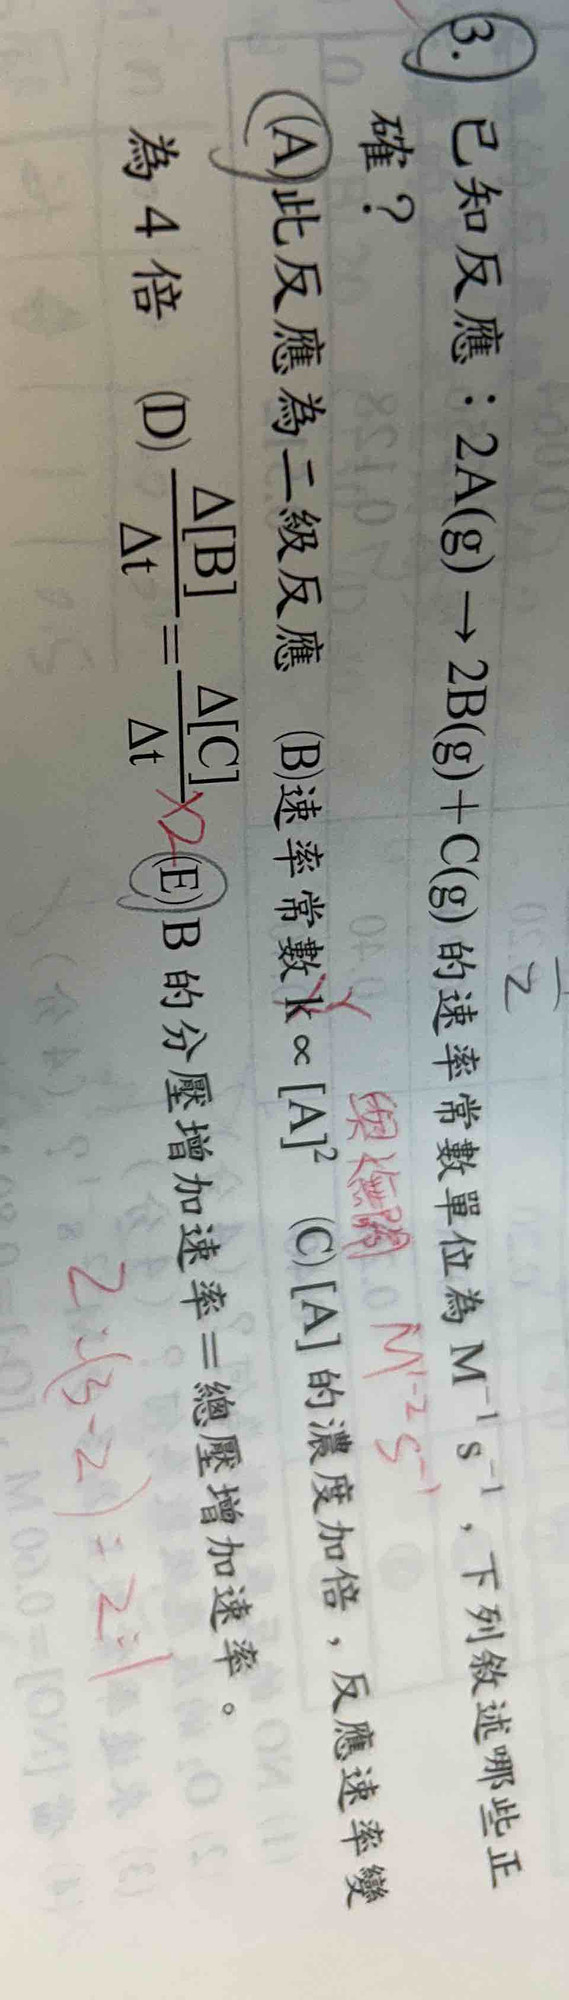 3. 已知反應：2A(g) → 2B(g) + C(g) 的速率常數單位為 M⁻¹ s⁻¹，下列敘述哪些正
確？
(A)此反應為二級反應 (B)速率常數 k ∝ [A]² (C)[A] 的濃度加倍，反應速率變
為 4 倍 (D) Δ[B]/Δt = Δ[C]/Δt ×2 (E) B 的分壓增加速率＝總壓增加速率。
與濃度無關
M⁻² s⁻¹
2:(3-2) = 2:1